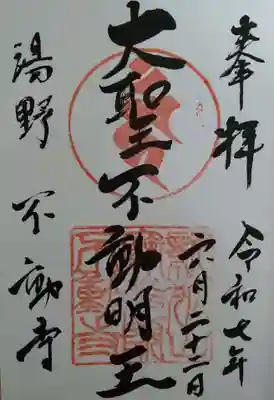 奉拝
令和七年
六月二十二日
大聖不動明王
湯野 不動寺